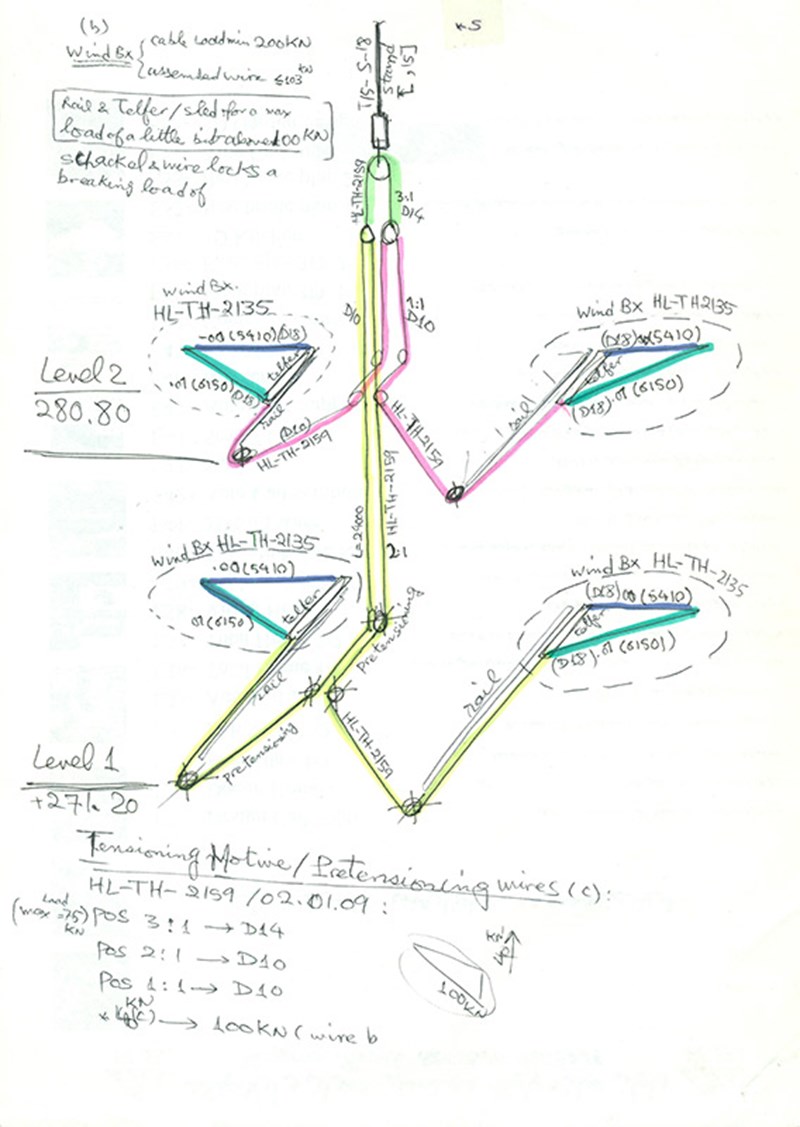 (b)
Wind Bx
cable loadmin 200KN
assembled wire ≤103 KN
Rail & Telfer/sled for a max
load of a little bit above 100 KN
schackel & wire locks a
breaking load of
*S
strand
HL-TH-2159
3:1
D14
D10
1:1
D10
Wind Bx.
HL-TH-2135
-00 (5410) (D18)
.01 (6150) (D18)
telfer
rail
(D10)
HL-TH-2159
Level 2
280.80
Wind Bx HL-TH2135
(D18) (5410)
telfer
(D18).01 (6150)
rail
HL-TH-2159
HL-TH-2159
L=24000
2:1
Wind Bx HL-TH-2135
.00 (5410)
01 (6150)
telfer
rail
pretensioning
Wind Bx HL-TH-2135
(D18) 00 (5410)
telfer
(D18).01 (6150)
rail
HL-TH-2159
pretensioning
Level 1
+271.20
Tensioning Motive/Pretensioning wires (c):
HL-TH-2159/02.01.09:
(Load max =75) KN
POS 3:1 → D14
POS 2:1 → D10
POS 1:1 → D10
KN
* (c) → 100KN (wire b
KN
up
100KN